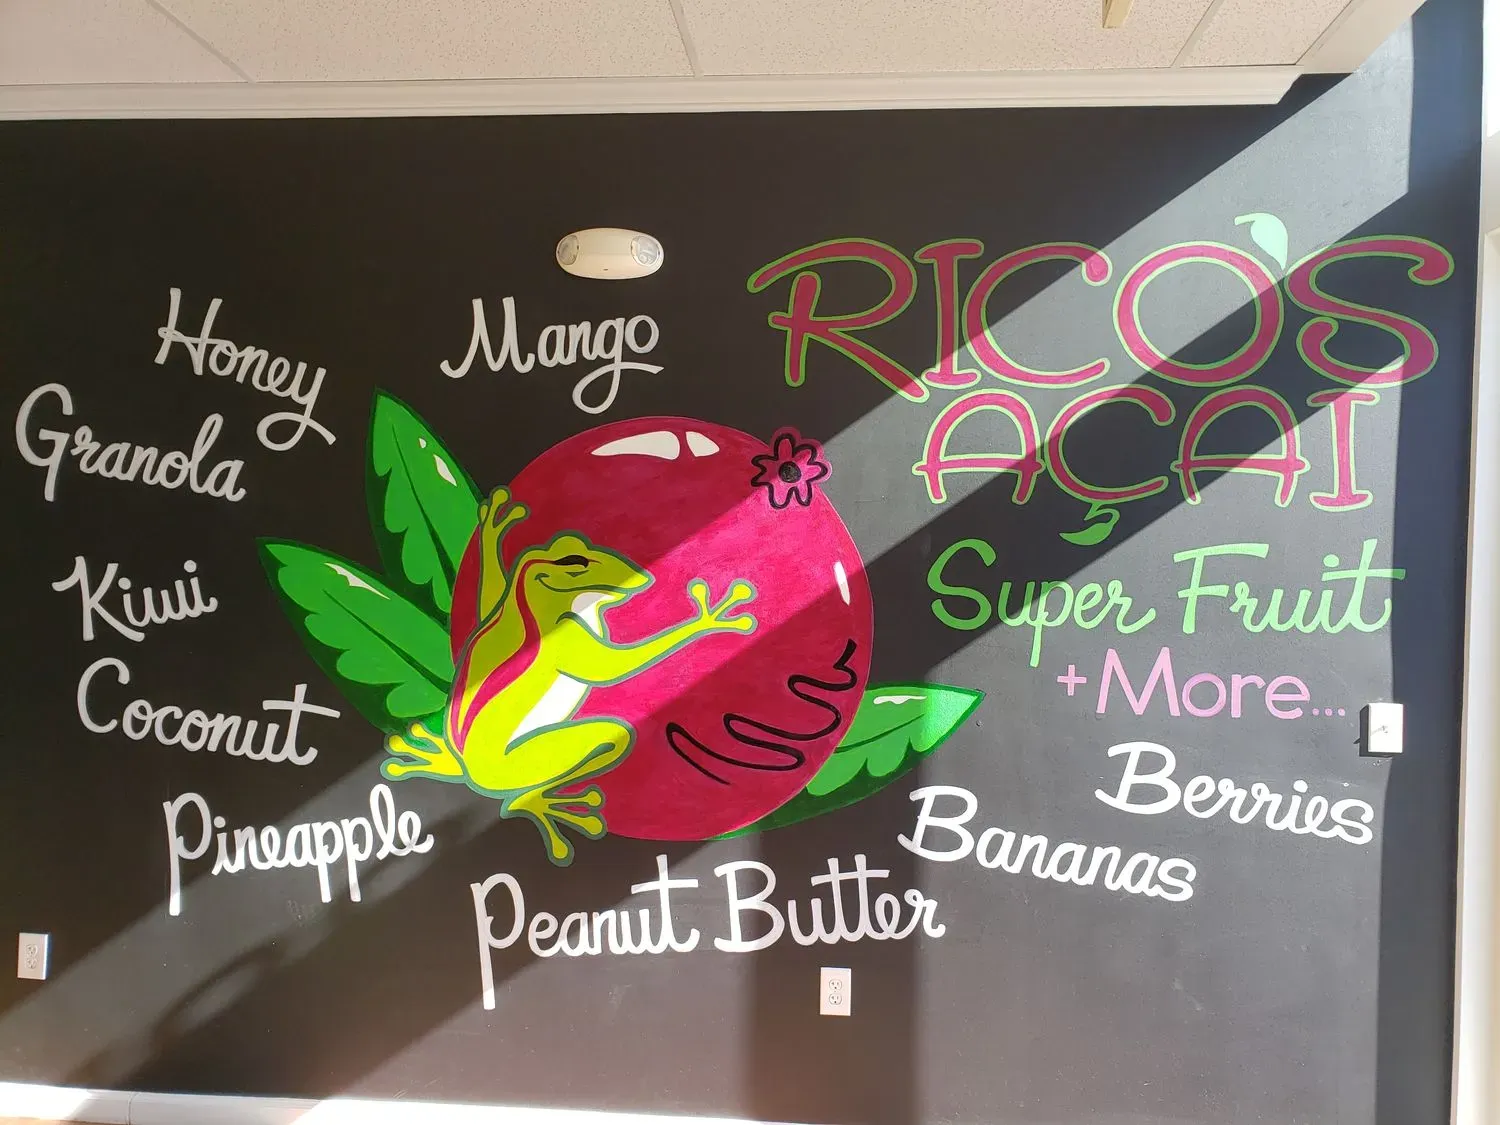 RICO'S
AÇAI
Super Fruit
+More...
Mango
Honey
Granola
Kiwi
Coconut
Pineapple
Peanut Butter
Bananas
Berries